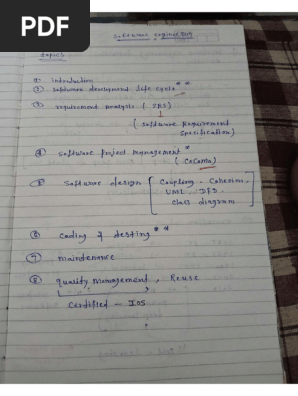 PDF
Software Engineering
Topics
① introduction
② software development life cycle **
③ requirement analysis ( SRS )
( Software Requirement
Specification )
④ Software Project management *
( CoComo )
⑤ Software design { Coupling - Cohesion.
UML DFD -
class diagram
⑥ Coding & testing **
⑦ maintenance
⑧ quality management, Reuse
Certified - IOS